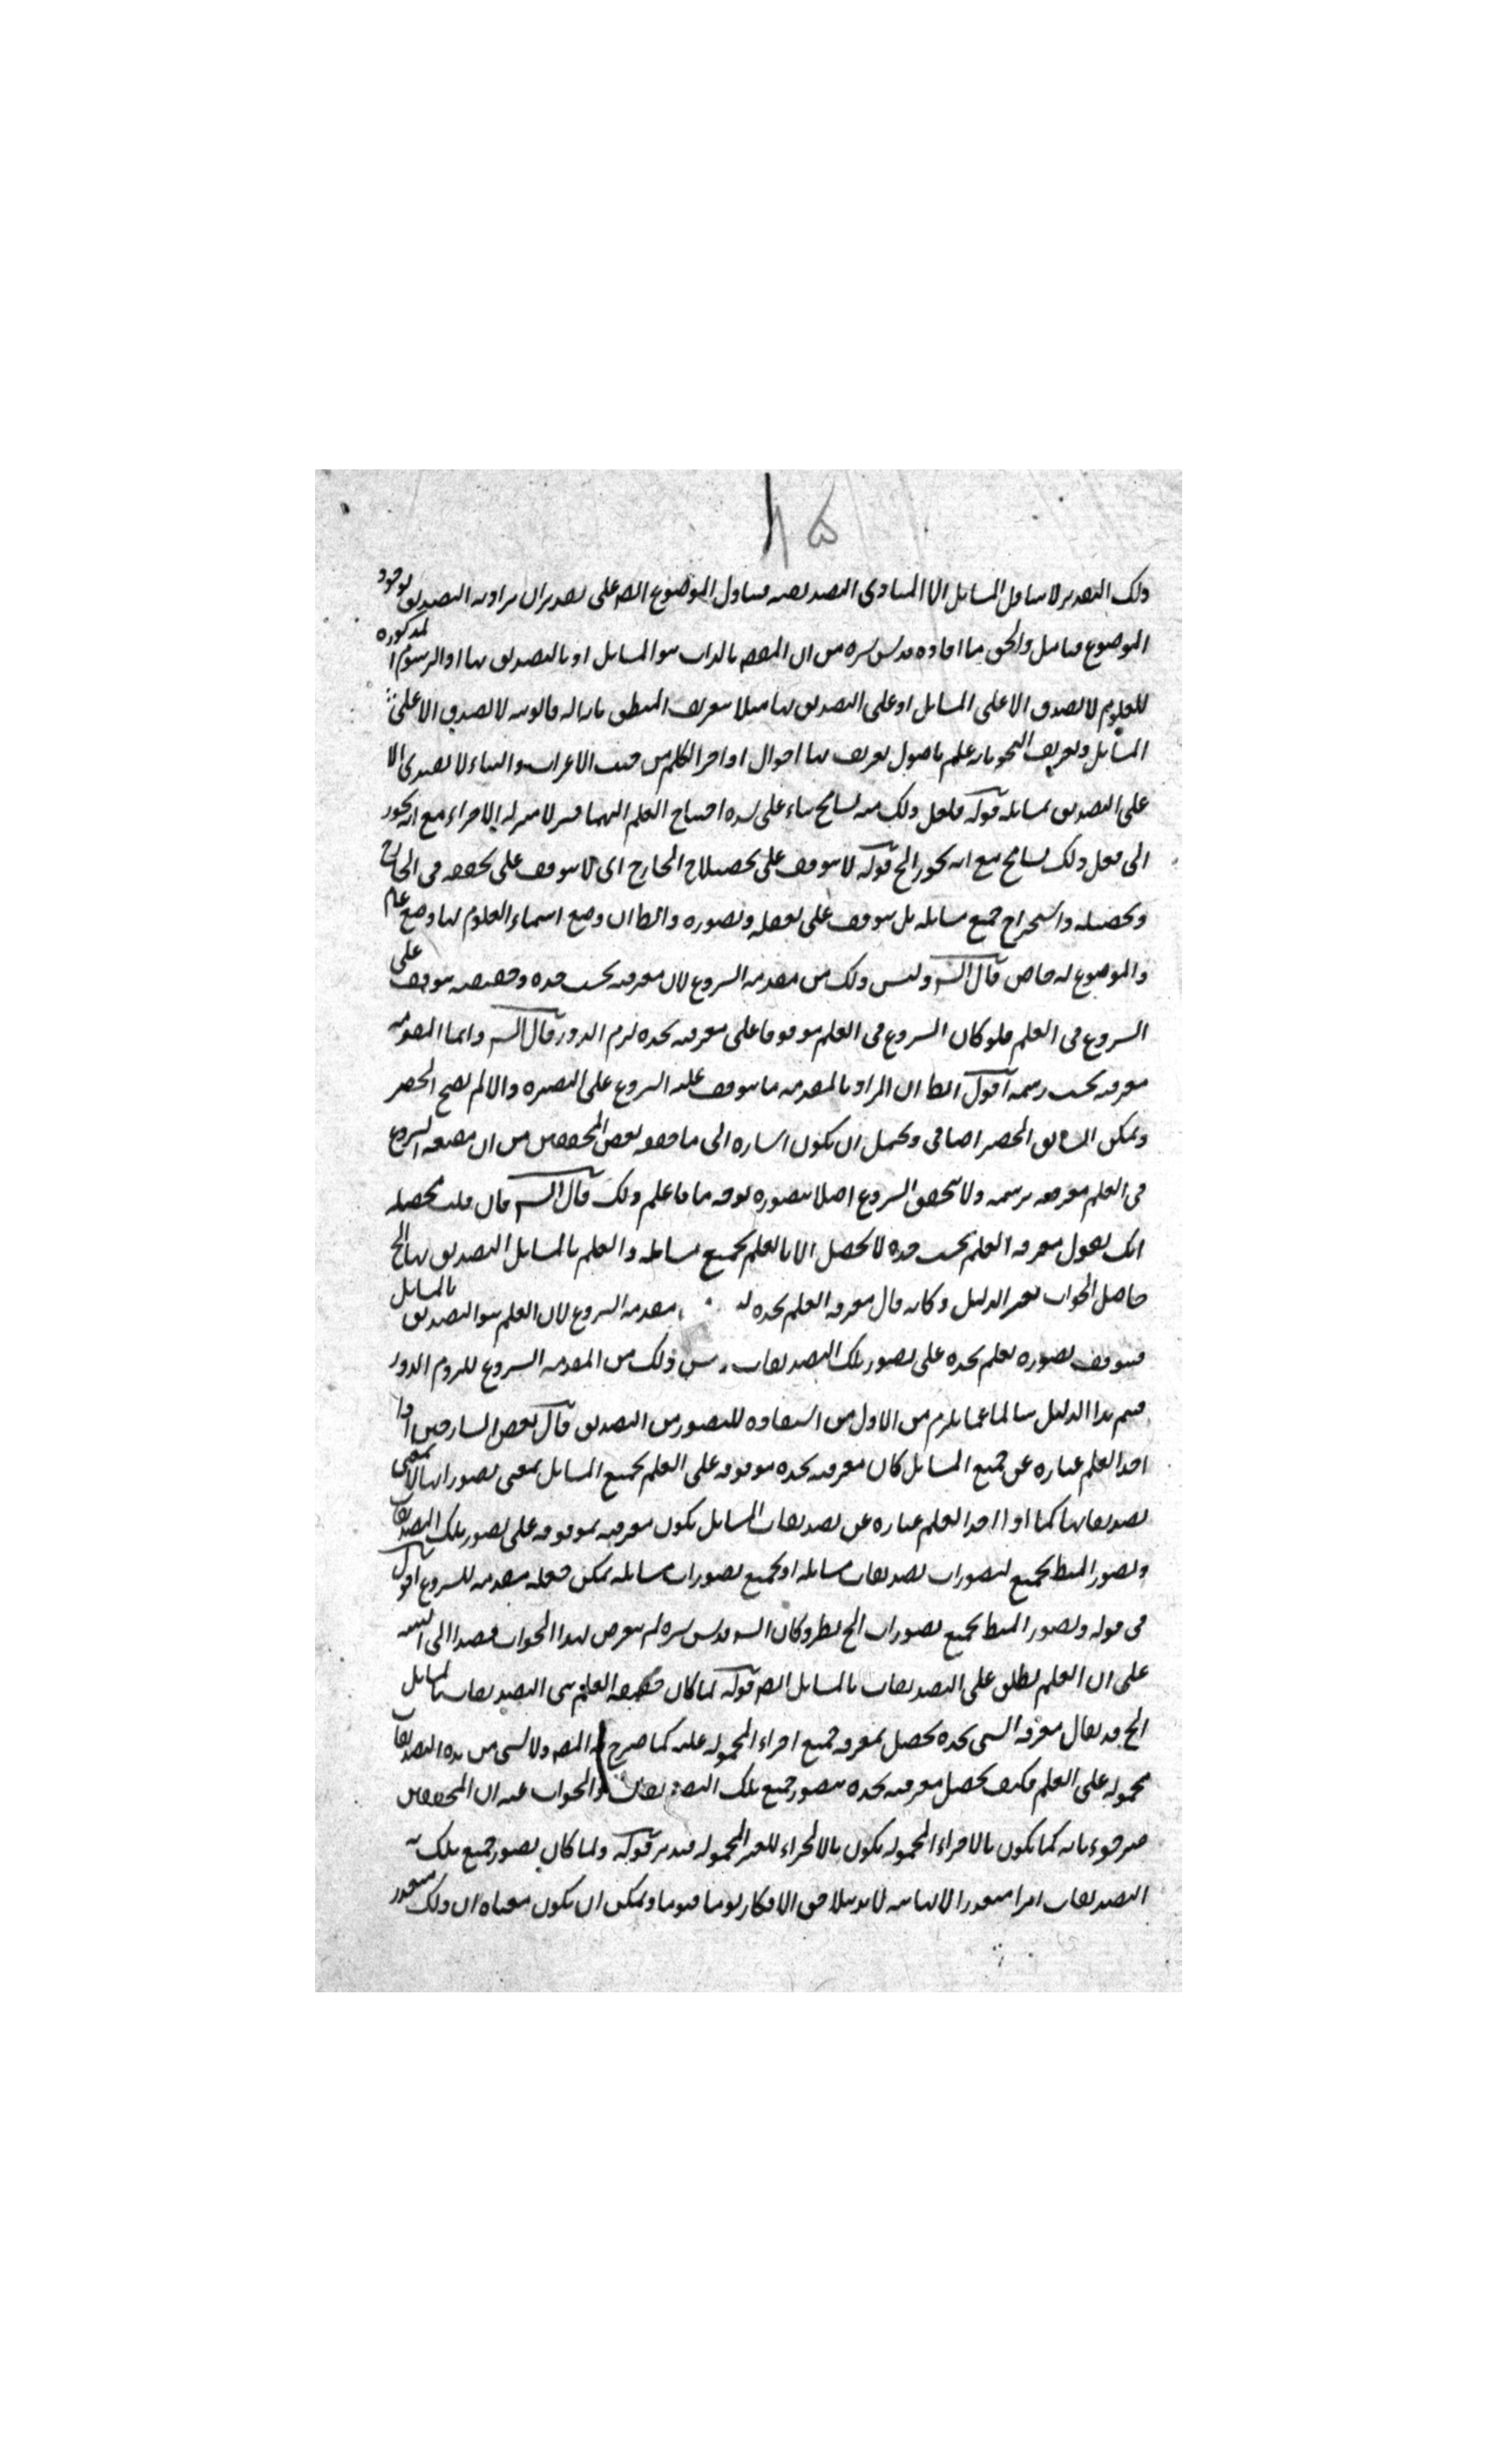 ذلك التقدير لا يتناول المسائل الا المبادى التصديقية فيتناول الموضوع ايضا على تقدير ان يراد به التصديق بوجود
الموضوع فتامل والحق ما افاده قدس سره من ان المقصود بالذات هو المسائل او بالتصديق بها اذ الرسوم المذكوره
للعلوم لا يصدق الا على المسائل او على التصديق بها مثلا تعريف المنطق بانه اله قانونيه لا يصدق الا على
المسائل وتعريف النحو بانه علم باصول يعرف بها احوال اواخر الكلم من حيث الاعراب والبناء لا يصدق الا
على التصديق بمسائله قوله فلعل ذلك منه تسامح بناء على شده احتياج العلم اليهما فنزلا منزله الاجزاء مع انه يجوز
الى فعل ذلك تسامح مع انه يجوز الخ قوله لا يتوقف على تحصيله في الخارج اى لا يتوقف على تحققه فى الخارج
وتحصيله واستخراج جميع مسائله بل يتوقف على تعقله وتصوره والظ ان وضع اسماء العلوم لها وضع عام
والموضوع له خاص قال الشـ وليس ذلك من مقدمه الشروع لان معرفته بحسب حده وحقيقته يتوقف على
الشروع فى العلم فلو كان الشروع فى العلم موقوفا على معرفته بحده لزم الدور قال الشـ وانما المقدمه
معرفته بحسب رسمه اقول الظ ان المراد بالمقدمه ما يتوقف عليه الشروع على البصيره والا لم يصح الحصر
ويمكن ان يق الحصر اضافى ويحتمل ان يكون اشاره الى ما حققه بعض المحققين من ان حقيقه الشروع
فى العلم معرفته برسمه ولا يتحقق الشروع اصلا بتصوره بوجه ما فاعلم ذلك قال الشـ فان قلت محصله
انك تقول معرفه العلم بحسب حده لا يحصل الا بالعلم بجميع مسائله والعلم بالمسائل التصديق بها الخ
حاصل الجواب تغير الدليل وكانه قال معرفه العلم بحده مقدمه الشروع لان العلم هو التصديق بالمسائل
فيتوقف تصوره لعلم بحده على تصور تلك التصديقات ذلك من المقدمه الشروع للزوم الدور
فيتم هذا الدليل سالما عما يلزم من الاول من استفاده للتصور من التصديق قال بعض الشارحين اذا
اخذ العلم عباره عن جميع المسائل كان معرفته بحده موقوفه على العلم بجميع المسائل بمعنى تصوراتها لا بمعنى
تصديقاتها كما اذا اخذ العلم عباره عن تصديقات المسائل يكون معرفته موقوفه على تصور تلك التصديقات
وتصور المنطق بجميع تصورات تصديقات مسائله او بجميع تصورات مسائله يمكن جعله مقدمه للشروع اقول
فى قوله وتصور المنطق بجميع تصورات الخ نظر وكان الشـ قدس سره لم يتعرض لهذا الجواب قصدا الى التنبيه
على ان العلم يطلق على التصديقات بالمسائل ايضا قوله لما كان حقيقه العلم هى التصديقات بالمسائل
الخ قد يقال معرفه الشى بحده يحصل بمعرفه جميع اجزاء المحموله عليه كما صرح به المص ولا شى من هذه التصديقات
محموله على العلم فكيف يحصل معرفته بحده بتصور جميع تلك التصديقات والجواب عنه ان المحققين
صرحوا بانه كما يكون بالاجزاء المحموله يكون بالاجزاء الغير المحموله فتدبر قوله ولما كان تصور جميع تلك
التصديقات امرا متعذرا لا لهايته لانه بتلاحق الافكار يوما فيوما ويمكن ان يكون معناه ان ذلك متعذر